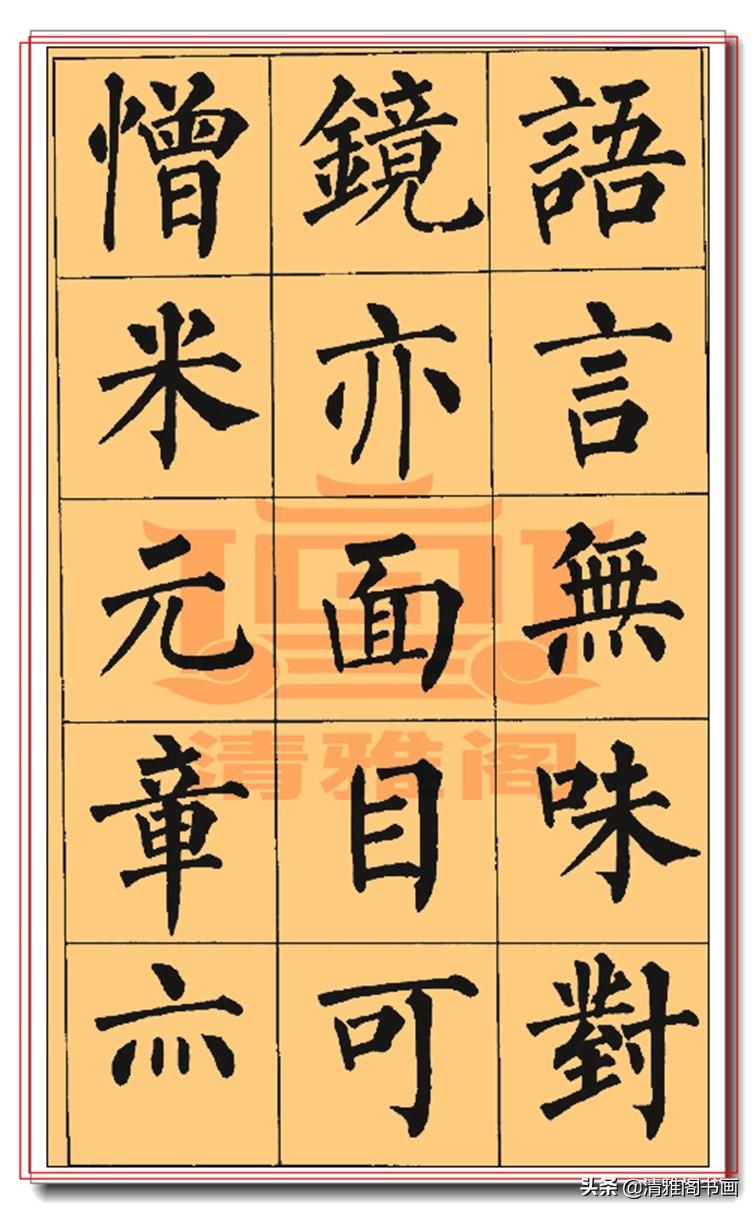 語言無味對
鏡亦面目可
憎米元章亦
清雅阁
头条 @清雅阁书画